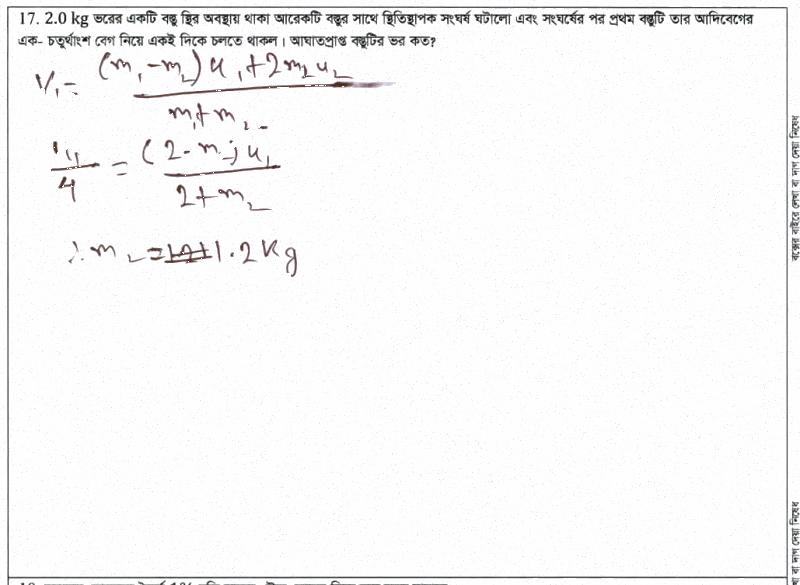 17. 2.0 kg ভরের একটি বস্তু স্থির অবস্থায় থাকা আরেকটি বস্তুর সাথে স্থিতিস্থাপক সংঘর্ষ ঘটালো এবং সংঘর্ষের পর প্রথম বস্তুটি তার আদিবেগের
এক- চতুর্থাংশ বেগ নিয়ে একই দিকে চলতে থাকল। আঘাতপ্রাপ্ত বস্তুটির ভর কত?
V₁ = (m₁-m₂)u₁+2m₂u₂
m₁+m₂
u₁/4 = (2-m₂)u₁
2+m₂
∴ m₂ = 1.2 kg
বক্সের বাইরে লেখা বা দাগ দেয়া নিষেধ
বা দাগ দেয়া নিষেধ